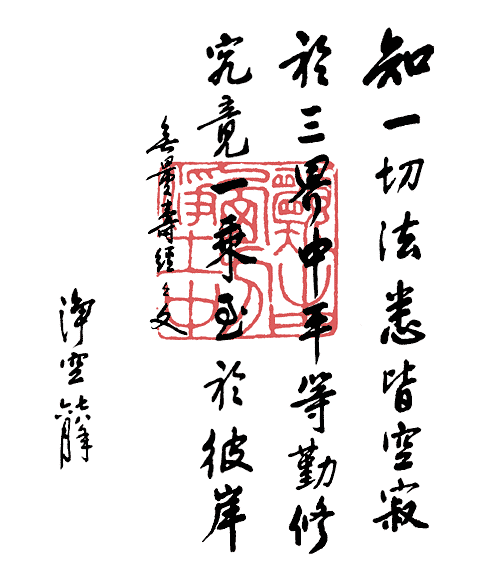 知一切法悉皆空寂
於三界中平等勤修
究竟一乘至於彼岸
無量壽經之文
淨空